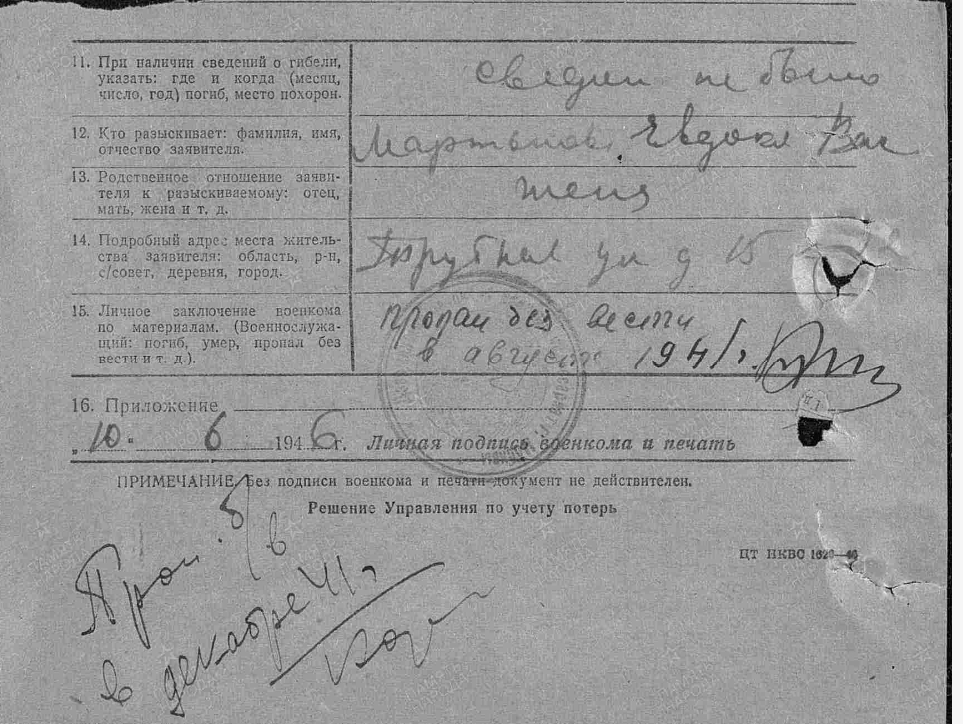 11. При наличии сведений о гибели,
указать: где и когда (месяц,
число, год) погиб, место похорон.
сведен не было
12. Кто разыскивает: фамилия, имя,
отчество заявителя.
Мартынов Евдоки Вас
13. Родственное отношение заяви-
теля к разыскиваемому: отец,
мать, жена и т. д.
жена
14. Подробный адрес места житель-
ства заявителя: область, р-н,
с/совет, деревня, город.
Трубная ул д 15
15. Личное заключение военкома
по материалам. (Военнослужа-
щий: погиб, умер, пропал без
вести и т. д.).
пропал без вести
в августе 1941 г.
16. Приложение
„10. 6 1946 г. Личная подпись военкома и печать
ПРИМЕЧАНИЕ. Без подписи военкома и печати документ не действителен.
Решение Управления по учету потерь
ЦТ НКВС
Проп. б/в
в декабре 41 г